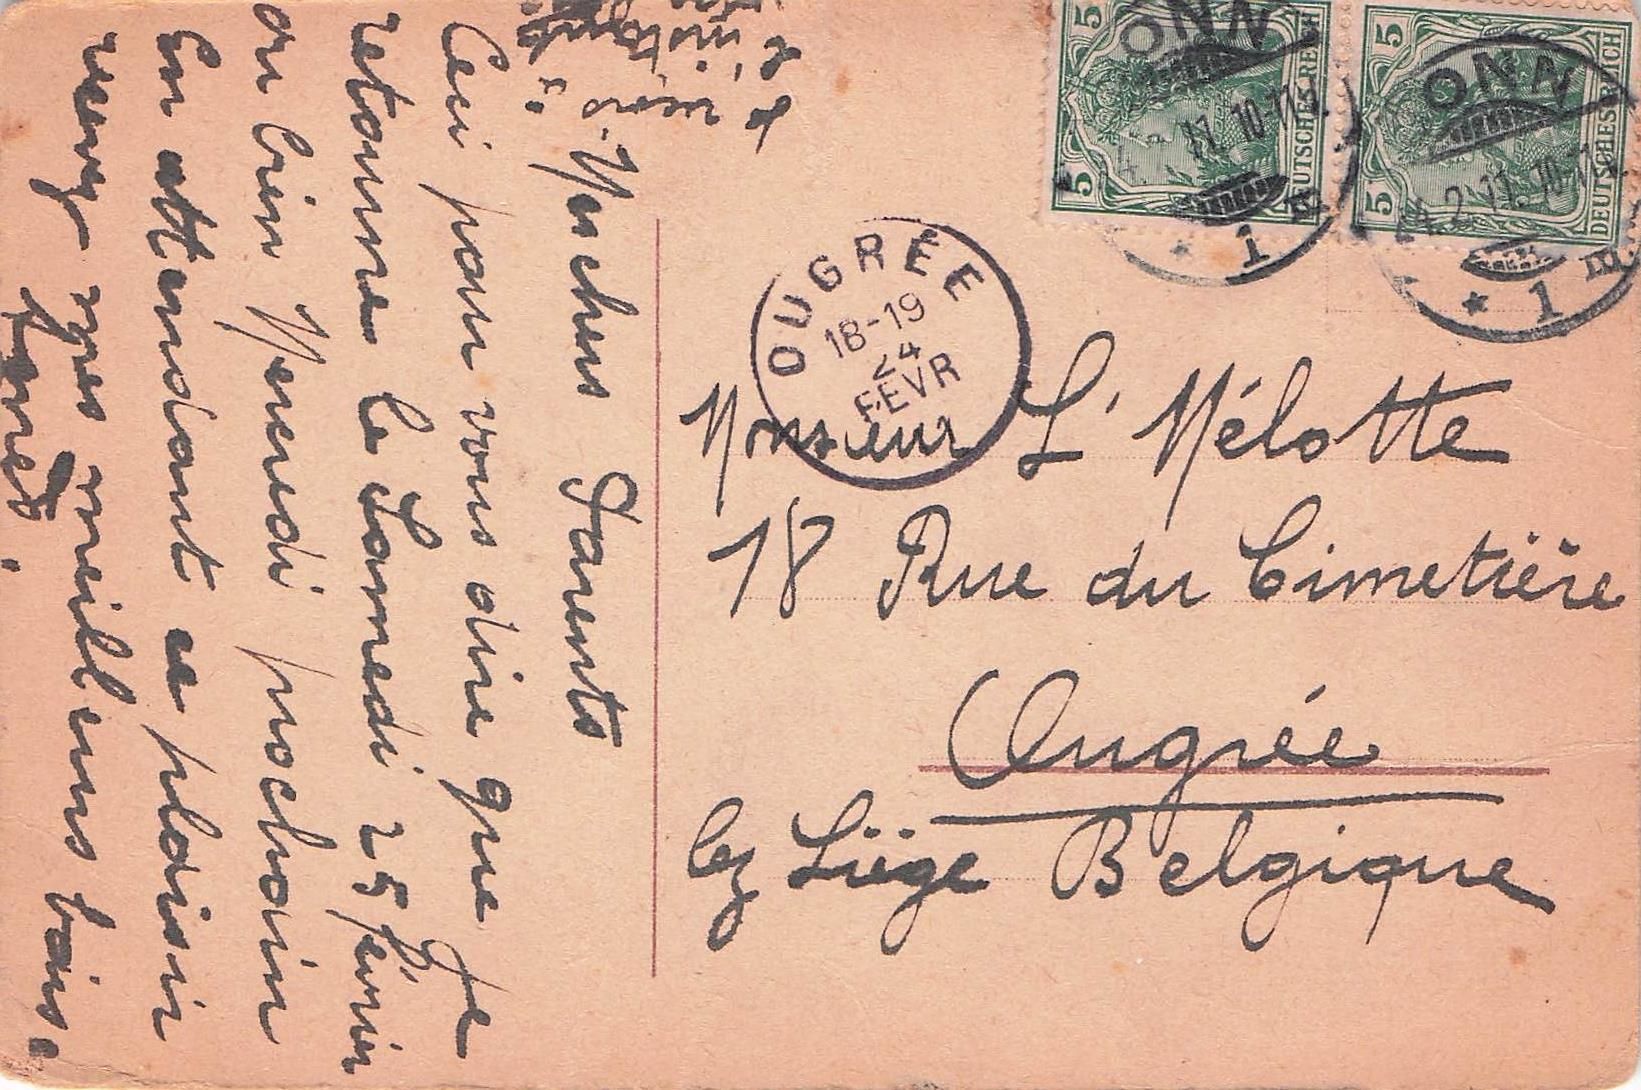 Mes chers Parents
Ceci pour vous dire que je
retourne le Samedi 25 février
ou bien Mercredi prochain
En attendant ce plaisir
recevez mes meilleurs bais.
5
DEUTSCHES REICH
5
5
DEUTSCHES REICH
5
ONN
11 10-11
* 1 E
ONN
24.2.11 10-11
* 1 E
OUGRÉE
18-19
24
FEVR
Monsieur L. Mélotte
18 Rue du Cimetière
Ougrée
lez Liège Belgique